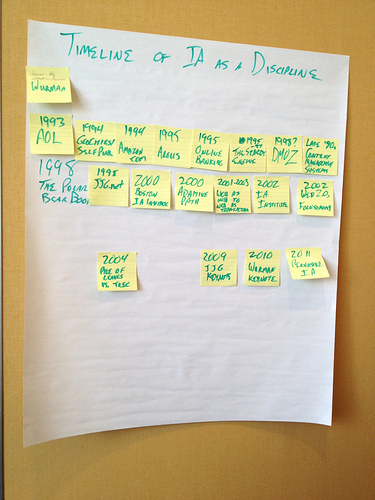 TIMELINE OF IA AS A DISCIPLINE
WURMAN
1993
AOL
1994
GEOCITIES/
SELF PUB.
1994
AMAZON
.COM
1995
ARGUS
1995
ONLINE
BANKING
1995
THE SEARCH
ENGINE
1998?
DMOZ
LATE '90s
CONTENT
MANAGEMENT
SYSTEMS
1998
THE POLAR
BEAR BOOK
1998
JJG.net
2000
BOSTON
IA
2000
ADAPTIVE
PATH
2001-2003
WEB AS
WEB TO
WEB AS
2002
IA
INSTITUTE
2002
WEB 2.0,
FOLKSONOMY
2004
PILE OF
LEAVES
VS. TREE
2009
JJG
KEYNOTE
2010
WURMAN
KEYNOTE
2011
PERVASIVE
IA